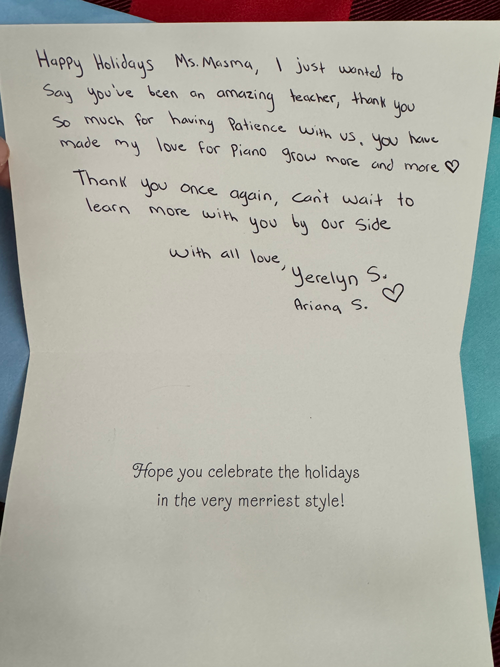 Happy Holidays Ms. Masma, I just wanted to
Say you've been an amazing teacher, thank you
So much for having Patience with us. you have
made my love for Piano grow more and more ♡
Thank you once again, can't wait to
learn more with you by our Side
With all love,
Yerelyn S.
Ariana S. ♡
Hope you celebrate the holidays
in the very merriest style!